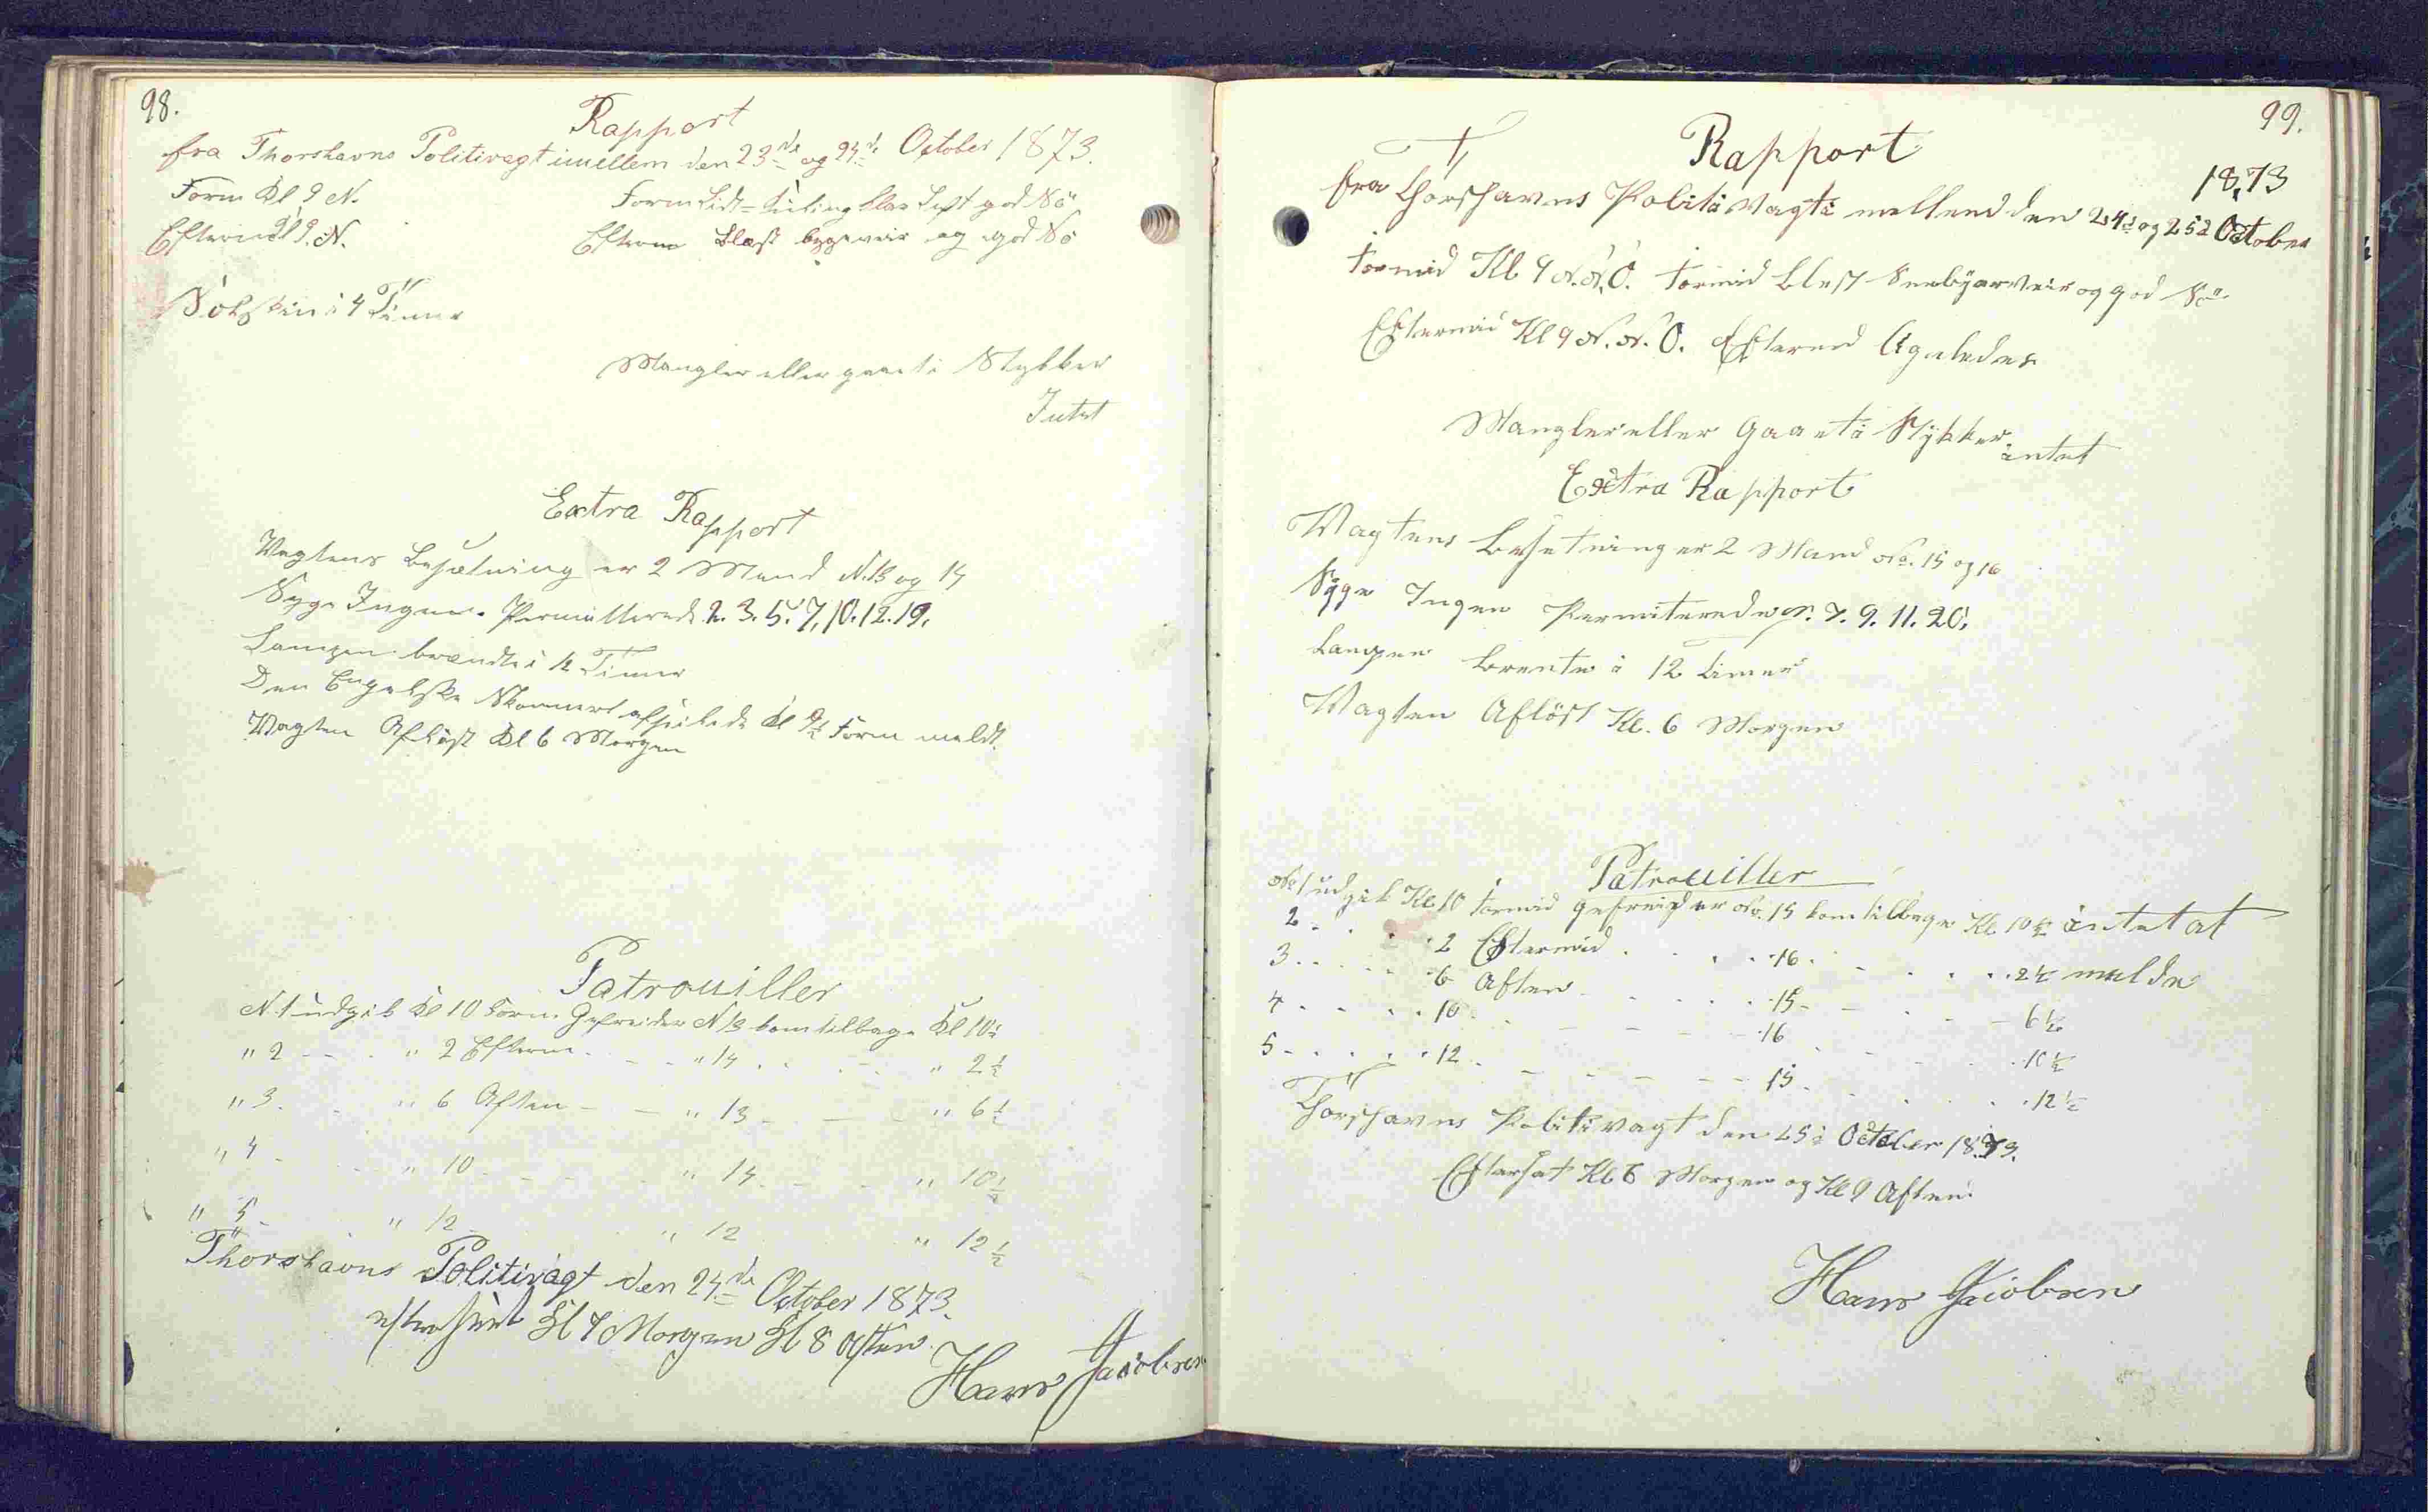 98.
Rapport
fra Thorshavns Politivagt imellem den 23de og 24de October 1873.
Form Kl 9 N.
Form Lidt Kuling klar Luft god Sö
Efterm Kl 9. N.
Efterm Blæst bygeveir og god Sö
Solskin i 4 Timer
Mangler eller gaaet i Stykker
Intet
Extra Rapport
Vagtens Besætning er 2 Mand N. 13 og 14
Syge Ingen. Permitterede 2. 3. 5. 7. 10. 12. 19.
Lampen brændte i 12 Timer
Den Engelske afseilede Kl 9½ Form meldt.
Vagten Aflöst Kl 6 Morgen
Patrouiller
N. 1 udgik Kl 10 Form. Gefreider N 13 kom tilbage Kl 10½
" 2 - - . " 2 Efterm - - " 14 . . . - " 2½
" 3 . - " 6 Aften - - " 13 - - - " 6½
" 4 - - - " 10 - - - " 14 - - - " 10½
" 5 - " 12 - " 12 " 12½
Thorshavns Politivagt den 24de October 1873.
Kl 7 Morgen Kl 8 Aften.
Hans Jacobsen
99.
Rapport
1873
fra Thorshavns Politi Vagt i mellend den 24d og 25d October
Formid Kl 9 N.N.O. Formid Blest Sneebyarveir og god Sö
Eftermid Kl 9 N.N.O. Eftermd Ligeledes
Mangler eller Gaaet i Stykker
intet
Extra Rapport
Wagtens Besetning er 2 Mand No. 15 og 16
Syge Ingen Permiterede N. 7. 9. 11. 20.
Lampen Brente i 12 timer
Wagten Aflöst Kl. 6 Morgen
Patrouiller
No 1 udgik Kl 10 Formid Gefreider No. 15 kom tilbage Kl 10½ intet at
2 - . . . 2 Eftermid . . . . 16 . - . . . 2½ melde
3 . . . . . 6 Aften - . . . . 15 - - . - - 6½
4 - . . . 10 . - - - - 16 . - - . . 10½
5 - . . . . 12 . - - - - - 15 . . . . . 12½
Thorshavns Politi vagt den 25d October 1873.
Kl 6 Morgen og Kl 9 Aften
Hans Jacobsen